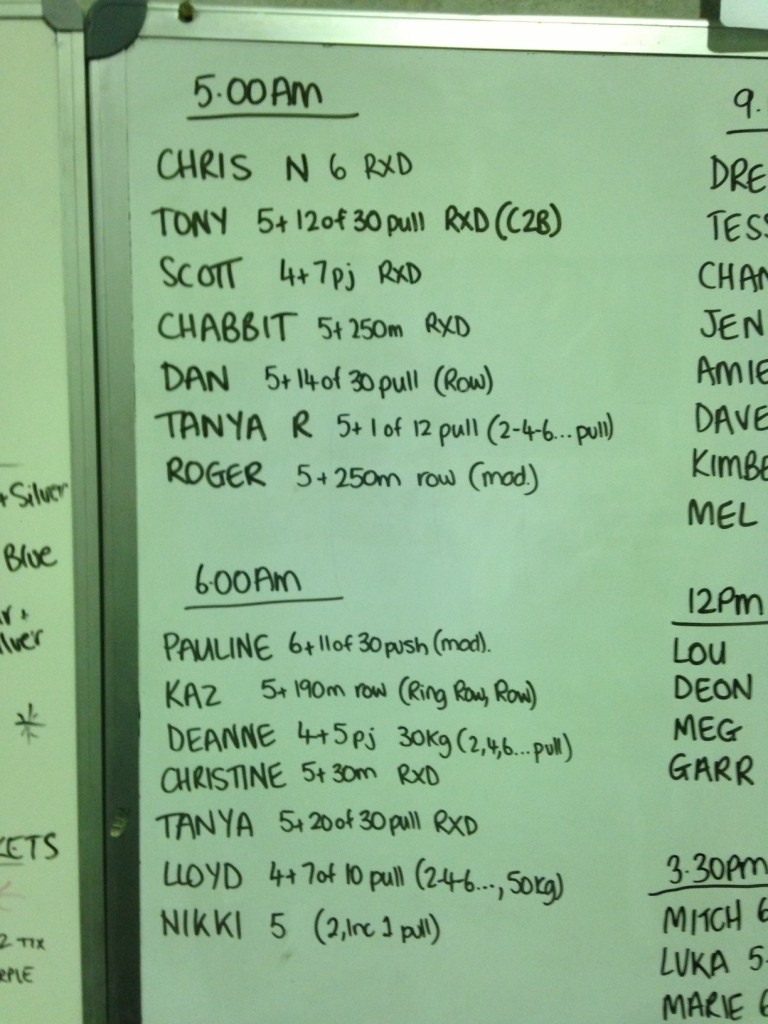 5.00Am
CHRIS N 6 RXD
TONY 5+12of 30 pull RXD (C2B)
SCOTT 4+7pj RXD
CHABBIT 5+250m RXD
DAN 5+14of 30 pull (Row)
TANYA R 5+1 of 12 pull (2-4-6...pull)
ROGER 5+250m row (mod.)
6.00Am
PAULINE 6+11of 30 push (mod).
KAZ 5+190m row (Ring Row, Row)
DEANNE 4+5pj 30kg (2,4,6...pull)
CHRISTINE 5+30m RXD
TANYA 5+20of 30 pull RXD
LLOYD 4+7of 10 pull (2-4-6...,50kg)
NIKKI 5 (2,Inc 1 pull)
9.
DRE
TESS
CHAN
JEN
AMIE
DAVE
KIMBE
MEL
12Pm
LOU
DEON
MEG
GARR
3.30PM
MITCH 6
LUKA 5-
MARIE 6
+ Silver
Blue
lver
*
KETS
2 TIX
RPLE